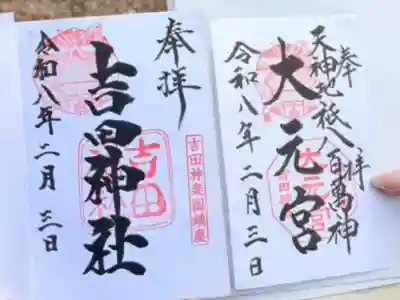 奉拝
吉田神社
令和八年二月三日
吉田神楽岡鎮座
吉田
奉拝
天神地祇八百萬神
大元宮
令和八年二月三日